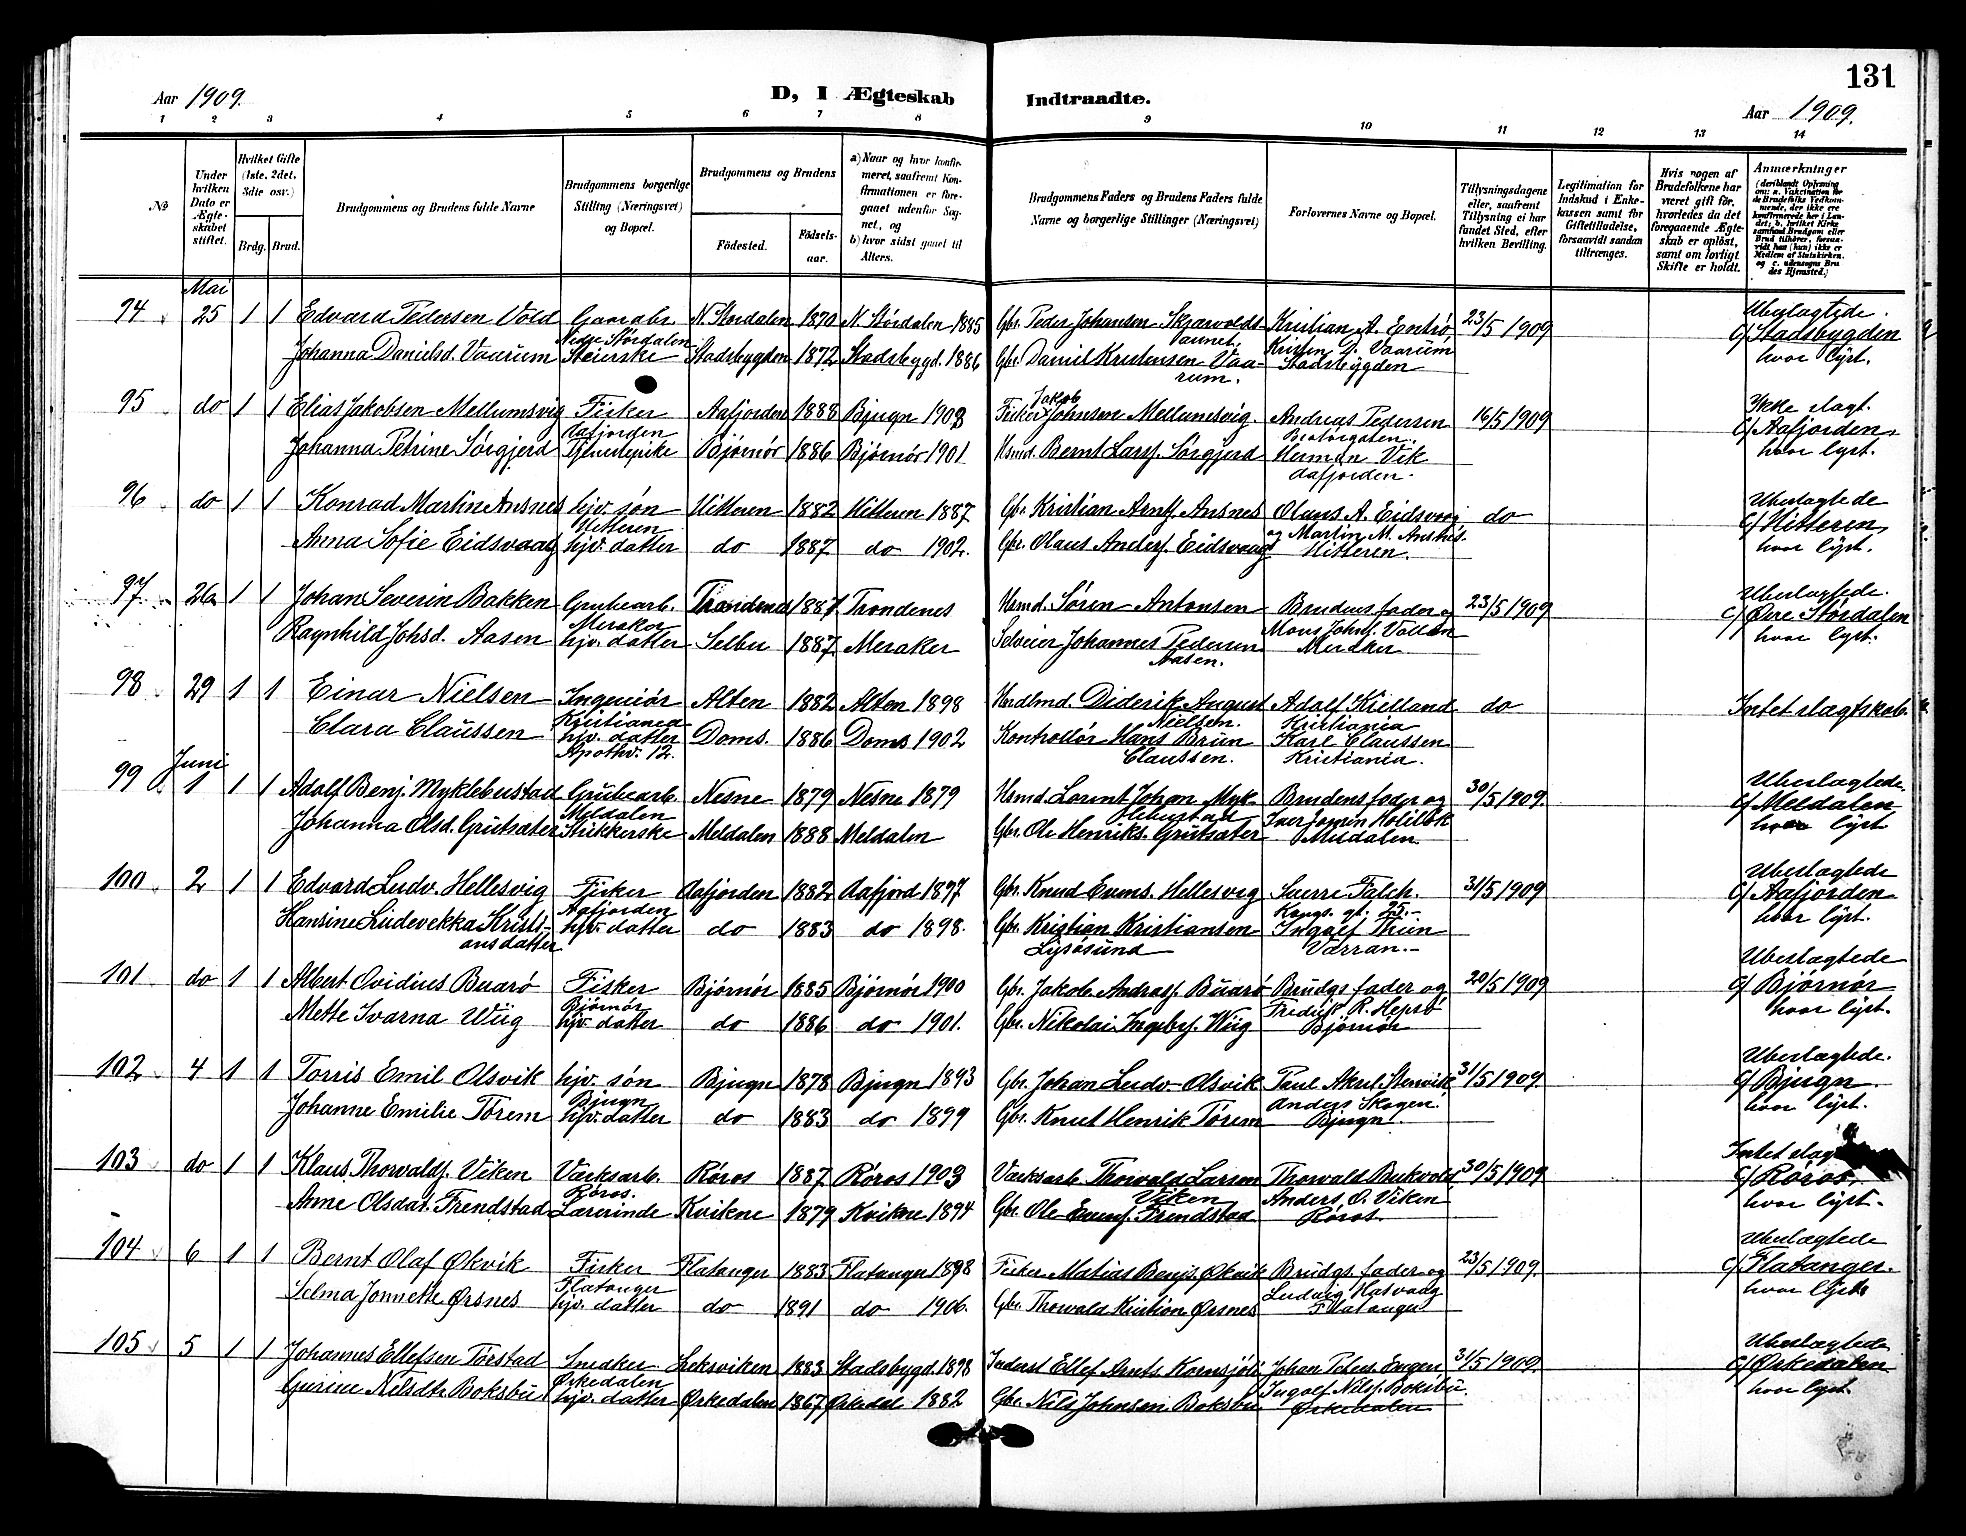 131
Aar 1909.
D, I Ægteskab Indtraadte.
Aar 1909.
1 2 3 4 5 6 7 8 9 10 11 12 13 14
No
Under hvilken Dato er Ægteskabet stiftet.
Hvilket Gifte (1ste, 2det, 3die osv.)
Brdg. Brud.
Brudgommens og Brudens fulde Navne
Brudgommens borgerlige Stilling (Næringsvei) og Bopæl.
Brudgommens og Brudens
Födested. Födselsaar.
a) Naar og hvor konfirmeret, saafremt Konfirmationen er foregaaet udenfor Sognet, og b) hvor sidst gaaet til Alters.
Brudgommens Faders og Brudens Faders fulde Navne og borgerlige Stillinger (Næringsvei)
Forlovernes Navne og Bopæl.
Tillysningsdagene eller, saafremt Tillysning ei har fundet Sted, efter hvilken Bevilling.
Legitimation for Indskud i Enkekassen samt for Giftetilladelse, forsaavidt saadan tiltrænges.
Hvis nogen af Brudefolkene har været gift før, hvorledes da det foregaaende Ægteskab er oplöst, samt om lovligt Skifte er holdt.
Anmærkninger
(deriblandt Oplysning om: a. Vakcination for de Brudefolks Vedkommende, der ikke ere konfirmerede her i Landet; b. hvilket Kirkesamfund Brudgom eller Brud tilhører, forsaavidt han (hun) ikke er Medlem af Statskirken, og c. udensogns Brudes Hjemsted.)
Mai
94 25 1 1 Edvard Pedersen Vold Gaardbr. N. Stördalen 1870 N. Stördalen 1885 Gbr. Peder Johansen Skjævolds Kristian A. Entrö 23/5 1909 Ubeslægtede.
Nedre Stördalen
Johanna Danielsd. Vaarum Stadsbygden 1872 Stadsbygd. 1886 Gbr. Daniel Kristensen Vaarum. Kristen D. Vaarum Stadsbygden c/ Stadsbygden hvor lyst.
95 do 1 1 Elias Jakobsen Mellumsvig Fisker Aafjorden 1888 Bjugn 1903 Fisker Jakob Johnsen Mellumsvig. Andreas Pedersen 16/5 1909 Ikke slagt.
Aafjorden
Johanna Petrine Sörgjerd Tjenestepike Björnör 1886 Björnör 1901. Hsmd. Bernt Larsf. Sörgjerd Herman Vik Aafjorden. c/ Aafjorden, hvor lyst.
96 do 1 1 Konrad Martin Ansnes hjv. sön Hitteren 1882 Hitteren 1887 Gbr. Kristian Arntf. Ansnes Olaus A. Eidsvaag do Ubeslægtede
Hitteren
Anna Sofie Eidsvaag hjv. datter do 1887 do 1902. Gbr. Olaus Andersf. Eidsvaag og Martin M. Ansnes. Hitteren. c/ Hitteren, hvor lyst.
97 26 1 1 Johan Severin Bakken Grubearb. Trondenes 1887 Trondenes Hsmd. Sören Antonsen Brudens fader og 23/5 1909 Ubeslægtede.
Meraker
Ragnhild Johsd. Aasen hjv. datter Selbu 1887. Meraker Selveier Johannes Pedersen Aasen. Mons Johnf. Vollan Meraker c/ Övre Stördalen hvor lyst.
98 29 1 1 Einar Nielsen Ingeniör Alten 1882 Alten 1898 Hndlmd. Diderik August Nielsen. Adolf Kielland do Intet slagtskab.
Kristiania Kristiania
Clara Claussen hjv. datter Apothv. 12. Doms. 1886 Doms 1902 Kontrollör Hans Brun Claussen. Karl Claussen Kristiania.
Juni
99 1 1 1 Adolf Benj. Myklebustad Grubearb. Nesne 1879 Nesne 1879 Hsmd. Lorent Johan Myklebustad Brudens fader og 30/5 1909. Ubeslægtede.
Meldalen
Johanna Olsd. Grutsæter Strikkerske Meldalen 1888 Meldalen Gbr. Ole Henriks. Grutsæter Meldalen c/ Meldalen hvor lyst
100 2 1 1 Edvard Ludv. Hellesvig Fisker Aafjorden 1882 Aafjord 1897 Gbr. Knud Evens. Hellesvig Sverre Falch. 31/5 1909 Ubeslægtede
Aafjorden Kongs. gt. 25.
Hansine Ludevekka Kristiansdatter hjv. datter do 1883 do 1898. Gbr. Kristian Kristiansen Lysösund Ingolf Thun Værran. c/ Aafjorden hvor lyst.
101 do 1 1 Albert Ovidius Buarö Fisker Björnör 1885 Björnör 1900 Gbr. Jakob Andreasf. Buarö Brudgs fader og 20/5 1909 Ubeslægtede
Björnör
Mette Ivarna Wiig hjv. datter do 1886 do 1901. Gbr. Nikolai Ingebr. Wiig Fredrik R. Hepsö Björnör c/ Björnör hvor lyst.
102 4 1 1 Torris Emil Olsvik hjv. sön Bjugn 1878 Bjugn 1893 Gbr. Johan Ludv. Olsvik Paul Aksel Stenvik 31/5 1909 Ubeslægtede.
Bjugn
Johanne Emilie Törem hjv. datter do 1883 do 1899 Gbr. Knut Henrik Törem Anders Skogen Bjugn. c/ Bjugn. hvor lyst.
103 do 1 1 Klaus Thorvaldf. Viken Værksarb. Röros 1887 Röros 1903 Værksarb. Thorvald Larsen Viken Thorvald Bukvold 30/5 1909 Intet
Röros.
Anne Olsdat. Frendstad Lærerinde Kvikne 1879 Kvikne 1894 Gbr. Ole Evensf. Frendstad Anders O. Viken Röros c/ Röros, hvor lyst.
104 6 1 1 Bernt Olaf Økvik Fisker Flatanger 1883 Flatanger 1898 Fisker Matias Benj. Økvik Brudgs fader og 23/5 1909. Ubeslægtede
Flatanger
Selma Jonnette Ørsnes hjv. datter do 1891 do 1906. Gbr. Thorvald Kristian Ørsnes Ludvig Hatvaag Flatanger c/ Flatanger. hvor lyst
105 5 1 1 Johannes Ellefsen Törstad Snedker Leksviken 1883 Stadsbygd. 1898 Inderst Ellef Arnts. Johan Peter Eugen 31/5 1909. Ubeslægtede
Ørkedalen
Gurine Nilsdtr. Boksbu hjv. datter Ørkedalen 1867 Ørkedal. 1882 Gbr. Nils Johnsen Boksbu Ingolf Nilsf. Boksbu. Ørkedalen c/ Ørkedalen hvor lyst.